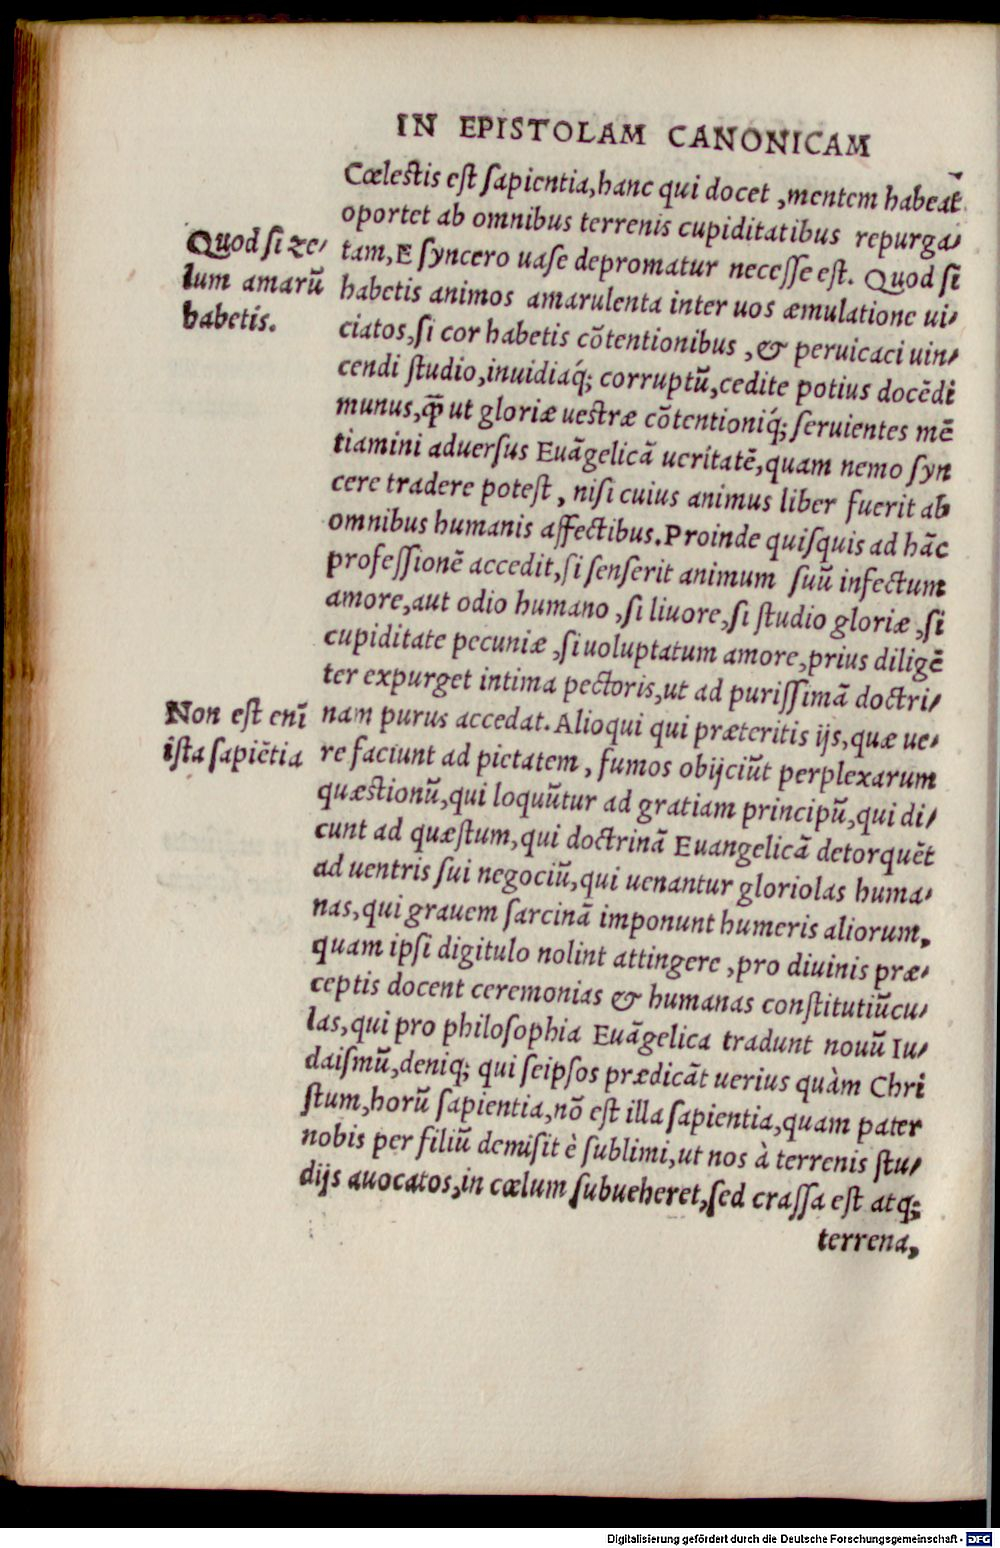 IN EPISTOLAM CANONICAM
Cœlestis est sapientia, hanc qui docet, mentem habeat
oportet ab omnibus terrenis cupiditatibus repurga⸗
tam, E syncero uase depromatur necesse est. Quod si
habetis animos amarulenta inter uos æmulatione ui⸗
ciatos, si cor habetis cõtentionibus, & peruicaci uin⸗
cendi studio, inuidiaq́; corruptũ, cedite potius docẽdi
munus, q̃ ut gloriæ uestræ cõtentioniq́; seruientes mẽ
tiamini aduersus Euãgelicã ueritatẽ, quam nemo syn
cere tradere potest, nisi cuius animus liber fuerit ab
omnibus humanis affectibus. Proinde quisquis ad hãc
professionẽ accedit, si senserit animum suũ infectum
amore, aut odio humano, si liuore, si studio gloriæ, si
cupiditate pecuniæ, si uoluptatum amore, prius diligẽ
ter expurget intima pectoris, ut ad purissimã doctri⸗
nam purus accedat. Alioqui qui præteritis ijs, quæ ue⸗
re faciunt ad pietatem, fumos obijciũt perplexarum
quæstionũ, qui loquũtur ad gratiam principũ, qui di⸗
cunt ad quæstum, qui doctrinã Euangelicã detorquẽt
ad uentris sui negociũ, qui uenantur gloriolas huma⸗
nas, qui grauem sarcinã imponunt humeris aliorum,
quam ipsi digitulo nolint attingere, pro diuinis præ⸗
ceptis docent ceremonias & humanas constitutiũcu⸗
las, qui pro philosophia Euãgelica tradunt nouũ Iu⸗
daismũ, deniq; qui seipsos prædicãt uerius quàm Chri
stum, horũ sapientia, nõ est illa sapientia, quam pater
nobis per filiũ demisit è sublimi, ut nos à terrenis stu⸗
dijs auocatos, in cœlum subueheret, sed crassa est atq;
terrena,
Quod si ze⸗
lum amarũ
habetis.
Non est enĩ
ista sapiẽtia
Digitalisierung gefördert durch die Deutsche Forschungsgemeinschaft - DFG